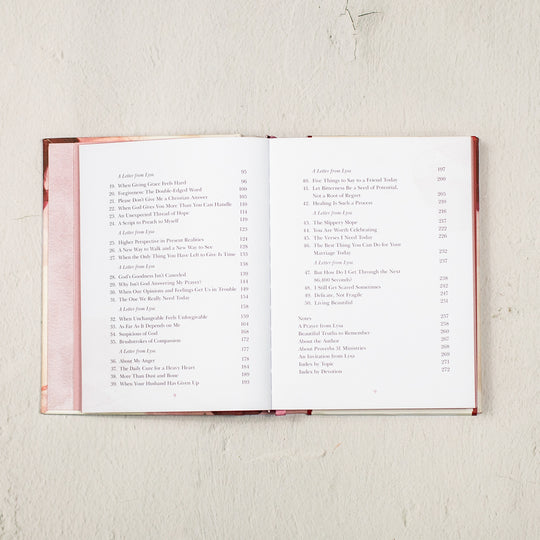 A Letter from Lysa 95
19. When Giving Grace Feels Hard 96
20. Forgiveness: The Double-Edged Word 100
21. Please Don't Give Me a Christian Answer 105
22. When God Gives You More Than You Can Handle 110
23. An Unexpected Thread of Hope 114
24. A Script to Preach to Myself 119
A Letter from Lysa 123
25. Higher Perspective in Present Realities 124
26. A New Way to Walk and a New Way to See 128
27. When the Only Thing You Have Left to Give Is Time 133
A Letter from Lysa 138
28. God's Goodness Isn't Canceled 139
29. Why Isn't God Answering My Prayer? 144
30. When Our Opinions and Feelings Get Us in Trouble 149
31. The One We Really Need Today 154
A Letter from Lysa 158
32. When Unchangeable Feels Unforgivable 159
33. As Far As It Depends on Me 164
34. Suspicious of God 168
35. Bendstrokes of Compassion 172
A Letter from Lysa 177
36. About My Anger 178
37. The Daily Cure for a Heavy Heart 184
38. More Than Dust and Bone 189
39. When Your Husband Has Given Up 193
A Letter from Lysa 197
40. Five Things to Say to a Friend Today 200
41. Let Bitterness Be a Seed of Potential,
Not a Root of Regret 205
42. Healing Is Such a Process 210
A Letter from Lysa 216
43. The Slippery Slope 217
44. You Are Worth Celebrating 222
45. The Verses I Need Today 226
46. The Best Thing You Can Do for Your
Marriage Today 232
A Letter from Lysa 237
47. But How Do I Get Through the Next
86,400 Seconds? 238
48. I Still Get Scared Sometimes 242
49. Delicate, Not Fragile 247
50. Living Beautiful 251
Notes 257
A Prayer from Lysa 258
Beautiful Truths to Remember 260
About the Author 267
About Proverbs 31 Ministries 268
An Invitation from Lysa 269
Index by Topic 271
Index by Devotion 272